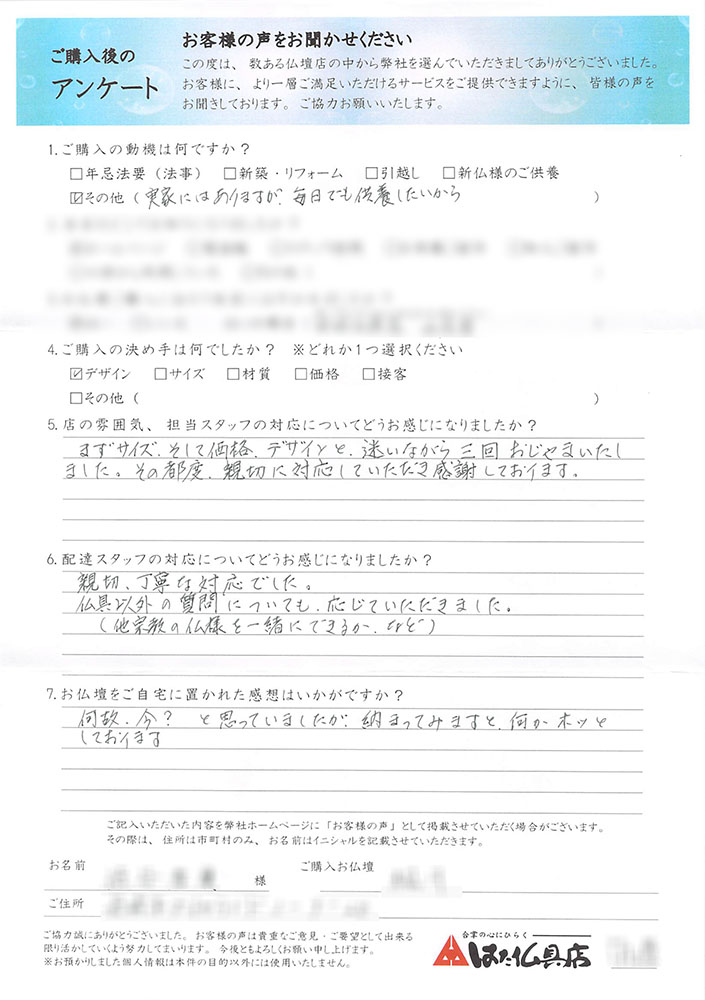 ご購入後の
アンケート
お客様の声をお聞かせください
この度は、数ある仏壇店の中から弊社を選んでいただきましてありがとうございました。
お客様に、より一層ご満足いただけるサービスをご提供できますように、皆様の声を
お聞きしております。ご協力お願いいたします。
1.ご購入の動機は何ですか？
□年忌法要（法事） □新築・リフォーム □引越し □新仏様のご供養
☑その他（実家にはありますが、毎日でも供養したいから）
4.ご購入の決め手は何でしたか？ ※どれか1つ選択ください
☑デザイン □サイズ □材質 □価格 □接客
□その他（ ）
5.店の雰囲気、担当スタッフの対応についてどうお感じになりましたか？
まずサイズ、そして価格、デザインと、迷いながら三回おじゃまいたし
ました。その都度、親切に対応していただき感謝しております。
6.配達スタッフの対応についてどうお感じになりましたか？
親切、丁寧な対応でした。
仏具以外の質問についても、応じていただきました。
（他宗教の仏様を一緒にできるか、など）
7.お仏壇をご自宅に置かれた感想はいかがですか？
何故、今？ と思っていましたが、納まってみますと、何かホッと
しております
ご記入いただいた内容を弊社ホームページに「お客様の声」として掲載させていただく場合がございます。
その際は、住所は市町村のみ、お名前はイニシャルを記載させていただきます。
お名前 様 ご購入お仏壇
ご住所
ご協力誠にありがとうございました。お客様の声は貴重なご意見・ご要望として出来る
限り活かしていくよう努力してまいります。今後ともよろしくお願い申し上げます。
※お預かりしました個人情報は本件の目的以外には使用いたしません。
合掌の心にひらく
はた仏具店